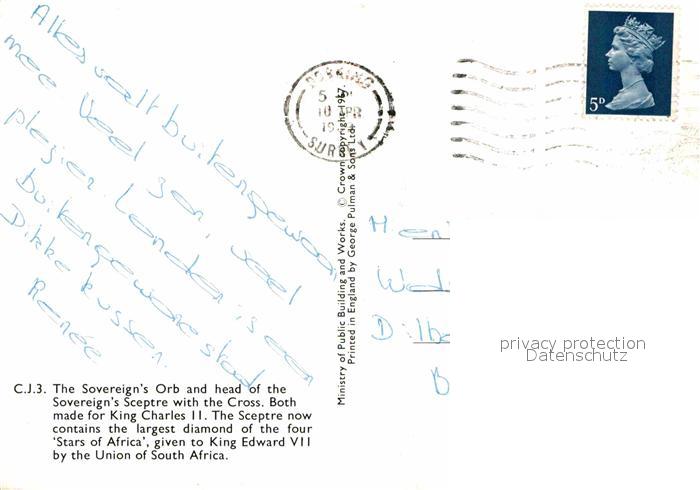 Alles valt buitengewoon
mee. Veel zon, veel
plezier. Londen is een
buitengewone stad
Dikke kussen.
Renée
DORKING
SURREY
5D
Ministry of Public Building and Works. © Crown copyright 1967.
Printed in England by George Pulman & Sons Ltd.
Hen
Wad
Dilbe
B
privacy protection
Datenschutz
C.J.3. The Sovereign's Orb and head of the
Sovereign's Sceptre with the Cross. Both
made for King Charles II. The Sceptre now
contains the largest diamond of the four
'Stars of Africa', given to King Edward VII
by the Union of South Africa.